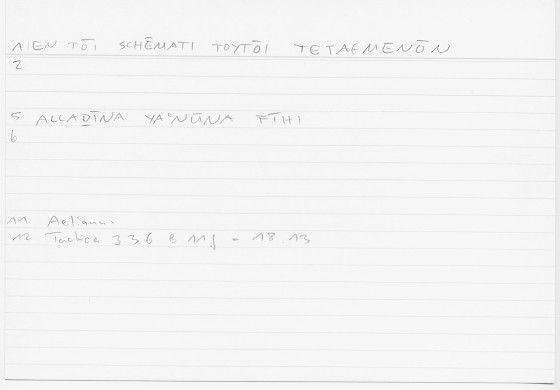 1 EN TŌI SCHĒMATI TOYTŌI TETAGMENŌN
2
5 ALLAḎĪNA YA'NŪNA FĪHI
6
11 Aelianus
12 Tactica 336 B 11f = 18.13